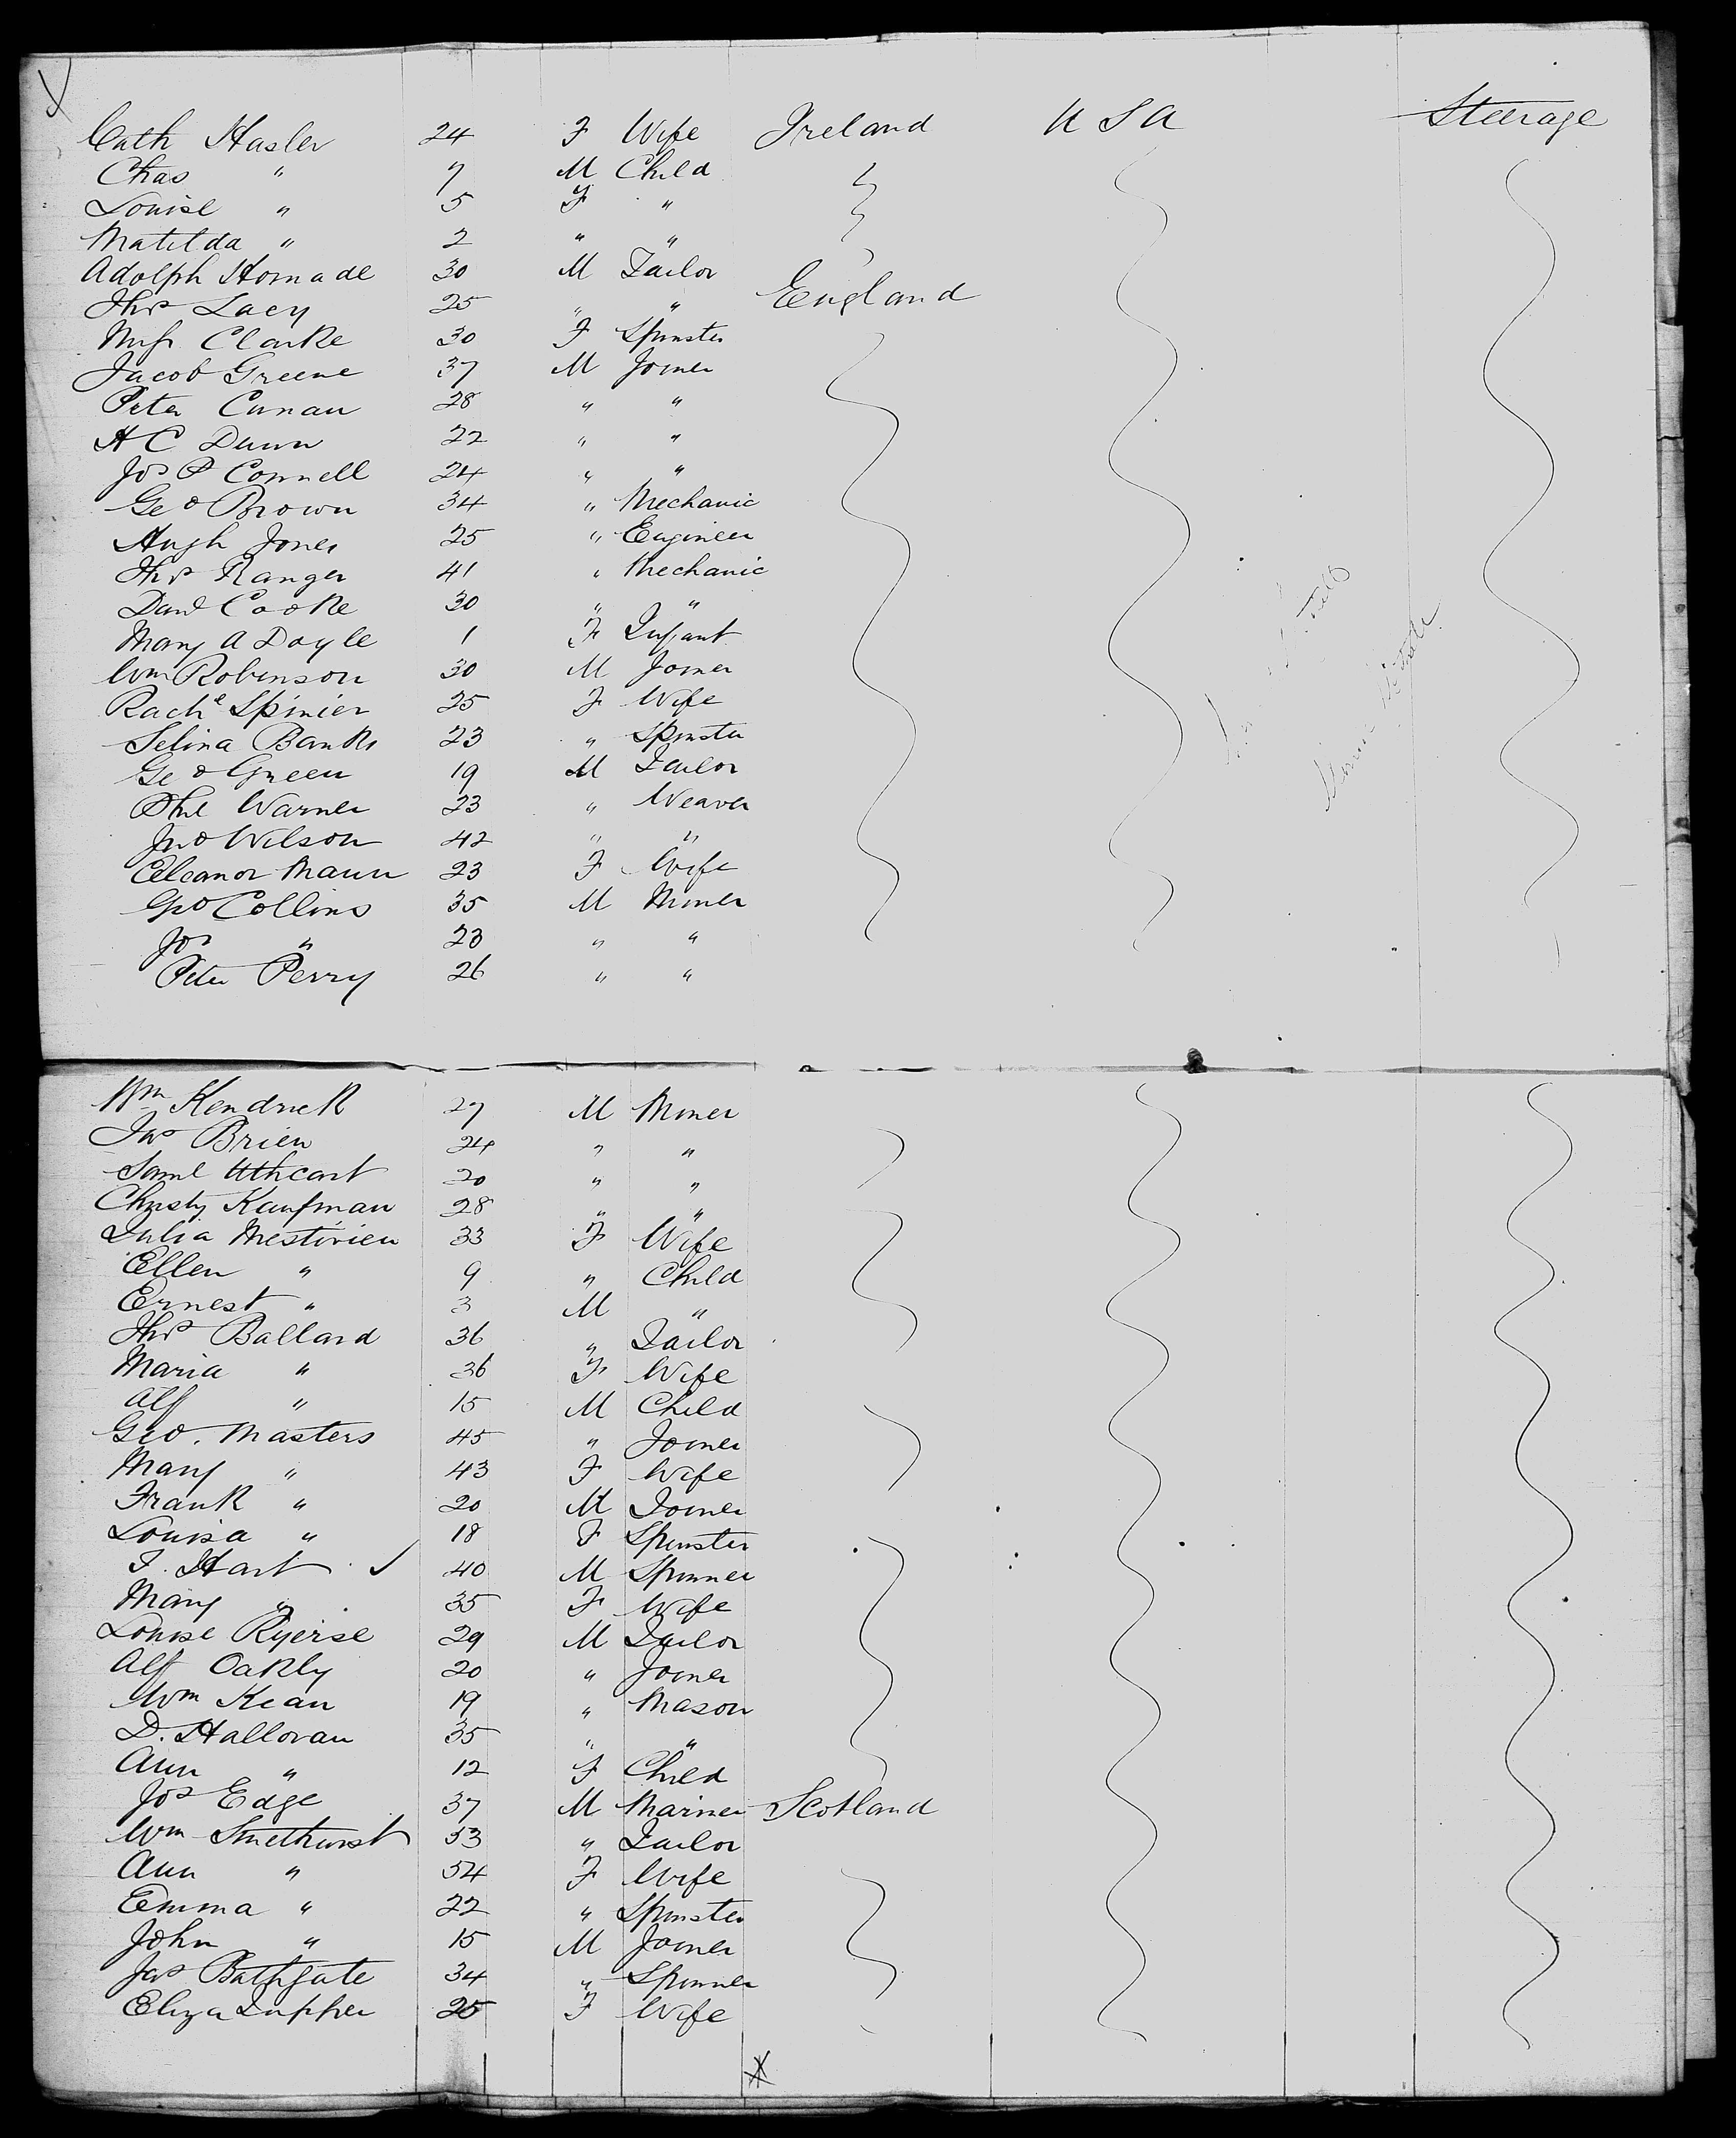 Cath Hasler 24 F Wife Ireland U S A Steerage
Chas " 7 M Child
Louise " 5 F "
Matilda " 2 " "
Adolph Homade 30 M Tailor
Thos Lacy 25 " " England
Miss Clarke 30 F Spinster
Jacob Greene 37 M Joiner
Peter Cunau 28 " "
H C Dunn 22 " "
Jos P Connell 24 " "
Geo Brown 34 " Mechanic
Hugh Jones 25 " Engineer
Thos Ranger 41 " Mechanic
Danl Cooke 30 " "
Mary A Doyle 1 F Infant
Wm Robinson 30 M Joiner
Rachl Spinier 25 F Wife
Selina Banks 23 " Spinster
Geo Green 19 M Tailor
Phil Warner 23 " Weaver
Jno Wilson 42 " "
Eleanor Mann 23 F Wife
Geo Collins 35 M Miner
Jos " 23 " "
Peter Perry 26 " "
Wm Kendrick 27 M Miner
Jas Brien 24 " "
Saml 20 " "
Christy Kaufman 28 " "
Julia Mestivien 33 F Wife
Ellen " 9 " Child
Ernest " 3 M "
Thos Ballard 36 " Tailor
Maria " 36 F Wife
Alf " 15 M Child
Geo. Masters 45 " Joiner
Mary " 43 F Wife
Frank " 20 M Joiner
Louisa " 18 F Spinster
T. Hart 40 M Spinner
Mary " 35 F Wife
Louise Ryerse 29 M Tailor
Alf Oakly 20 " Joiner
Wm Kean 19 " Mason
D. Halloran 35 " "
Ann " 12 F Child
Jos Edge 37 M Mariner Scotland
Wm Smethurst 53 " Tailor
Ann " 54 F Wife
Emma " 22 " Spinster
John " 15 M Joiner
Jas Bathgate 34 " Spinner
Eliza Tupper 25 F Wife